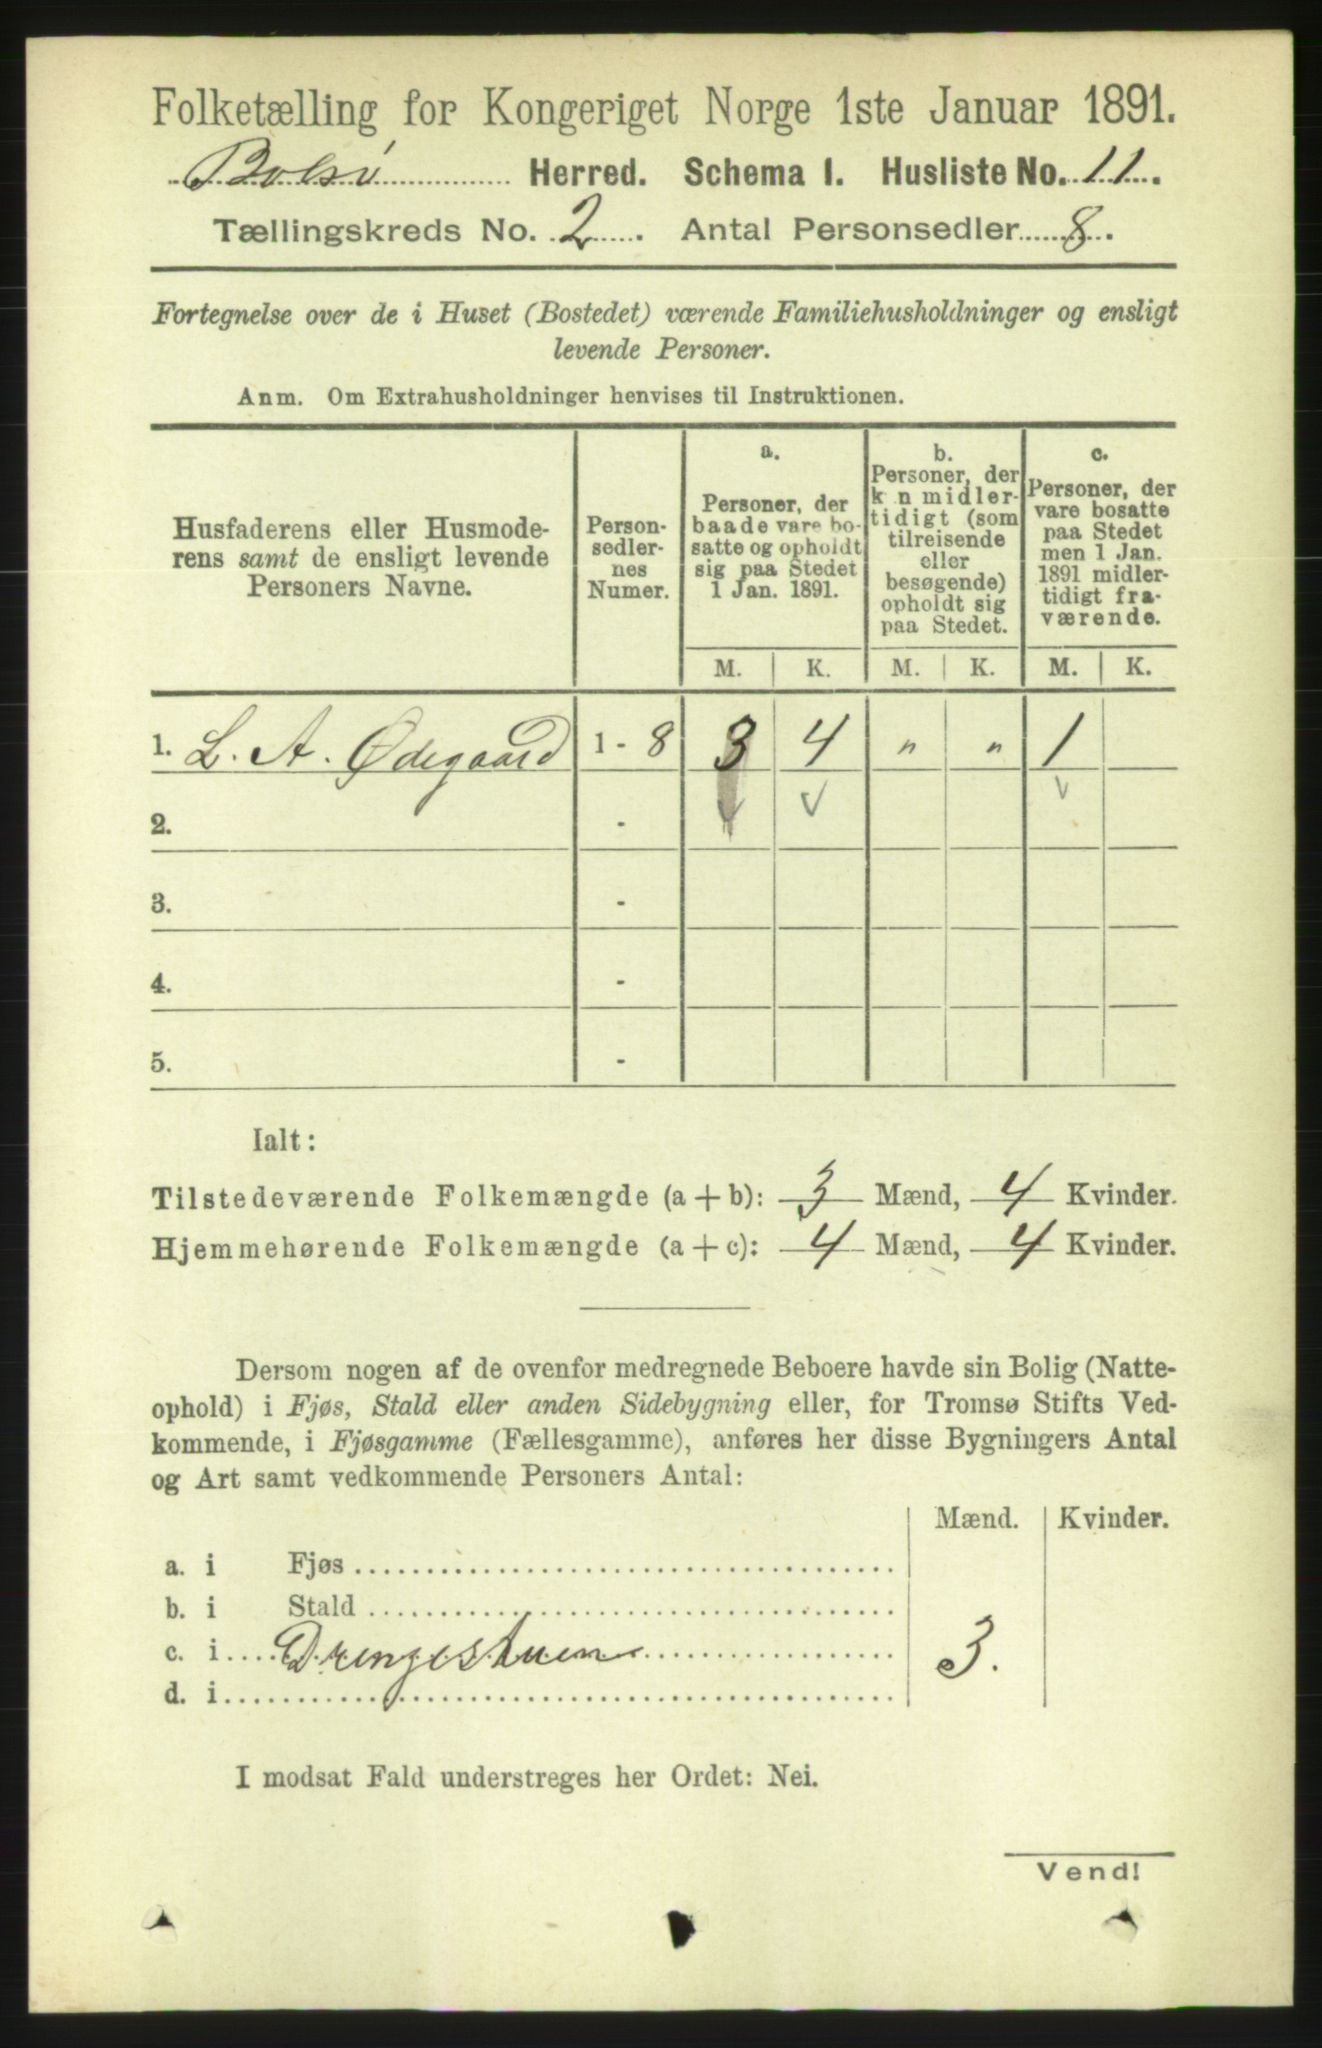 Folketælling for Kongeriget Norge 1ste Januar 1891.
Bolsø Herred. Schema I. Husliste No. 11.
Tællingskreds No. 2. Antal Personsedler 8.
Fortegnelse over de i Huset (Bostedet) værende Familiehusholdninger og ensligt
levende Personer.
Anm. Om Extrahusholdninger henvises til Instruktionen.
Husfaderens eller Husmode-
rens samt de ensligt levende
Personers Navne.
Person-
sedler-
nes
Numer.
a.
Personer, der
baade vare bo-
satte og opholdt
sig paa Stedet
1 Jan. 1891.
b.
Personer, der
k n midler-
tidigt (som
tilreisende
eller
besøgende)
opholdt sig
paa Stedet.
c.
Personer, der
vare bosatte
paa Stedet
men 1 Jan.
1891 midler-
tidigt fra-
værende.
M. K. M. K. M. K.
1. L. A. Ødegaard 1 - 8 3 4 " " 1
2. -
3. -
4. -
5. -
Ialt:
Tilstedeværende Folkemængde (a + b): 3 Mænd, 4 Kvinder.
Hjemmehørende Folkemængde (a + c): 4 Mænd, 4 Kvinder.
Dersom nogen af de ovenfor medregnede Beboere havde sin Bolig (Natte-
ophold) i Fjøs, Stald eller anden Sidebygning eller, for Tromsø Stifts Ved-
kommende, i Fjøsgamme (Fællesgamme), anføres her disse Bygningers Antal
og Art samt vedkommende Personers Antal:
Mænd. Kvinder.
a. i Fjøs
b. i Stald
c. i Drengestuen 3.
d. i
I modsat Fald understreges her Ordet: Nei.
Vend!